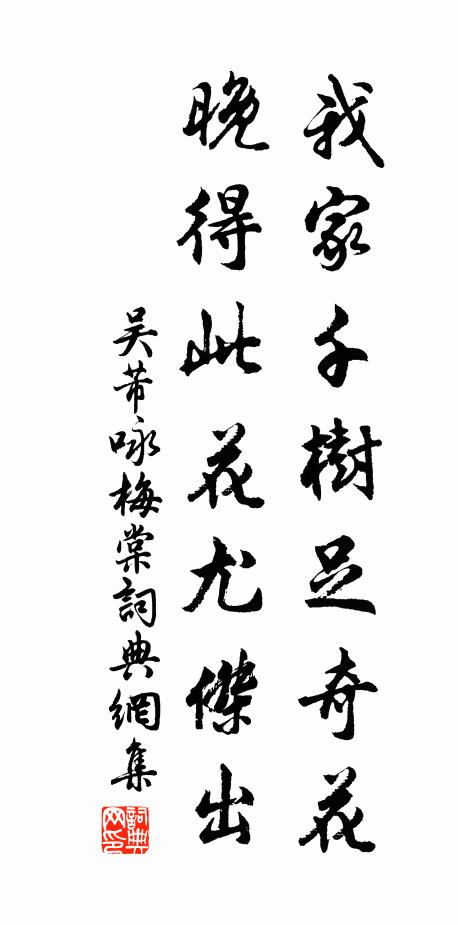 我家千樹足奇花
晚得此花尤傑出
吴芾咏梅棠詞典網集
詞典网印